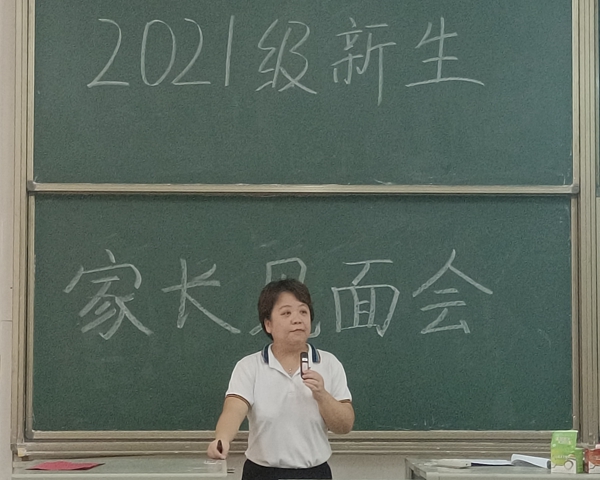 2021级新生
家长见面会